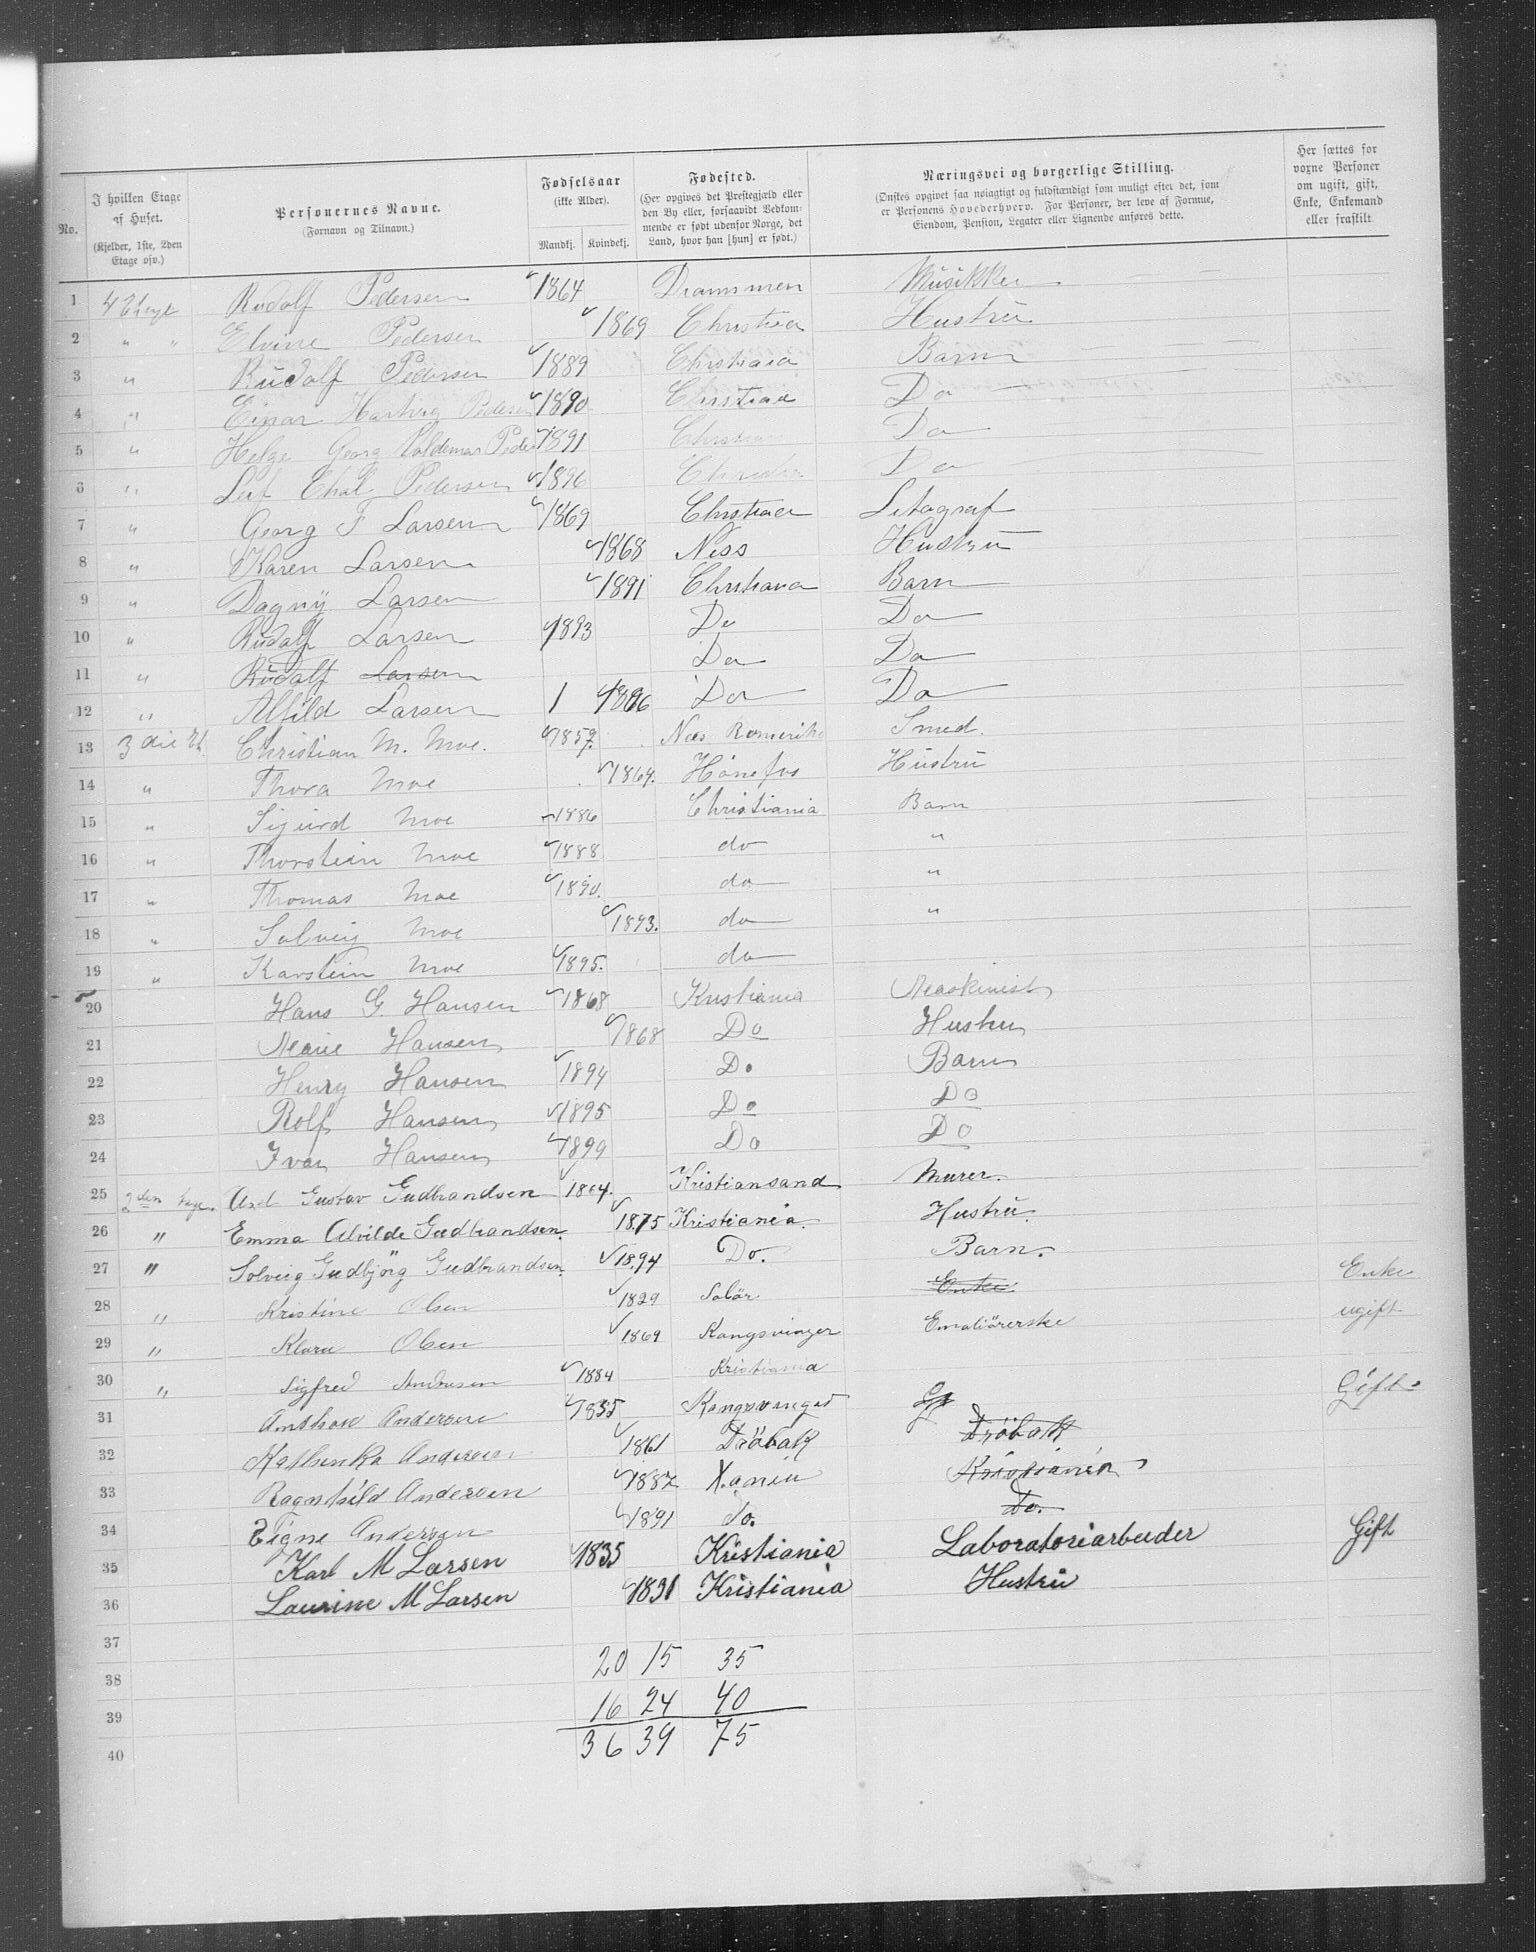 No.
I hvilken Etage af Huset.
(Kjelder, 1ste, 2den Etage osv.)
Personernes Navne.
(Fornavn og Tilnavn.)
Fødselsaar
(ikke Alder).
Mandkj. Kvindekj.
Fødested.
(Her opgives det Prestegjæld eller den By eller, forsaavidt Vedkommende er født udenfor Norge, det Land, hvor han [hun] er født.)
Næringsvei og borgerlige Stilling.
(Ønskes opgivet saa nøiagtigt og fuldstændigt som muligt efter det, som er Personens Hovederhverv. For Personer, der leve af Formue, Eiendom, Pension, Legater eller Lignende anføres dette.
Her sættes for voxne Personer om ugift, gift, Enke, Enkemand eller fraskilt
1 Rudolf Pedersen 1864 Drammen Musikker
2 " " Elvine Pedersen 1869 Christiea Hustru
3 " Rudolf Pedersen 1889 Christiaia Barn
4 " Einar Hartvig Pedersen 1890 Christiaa Do
5 " Helge Georg Valdemar Peder 1891 Christian Do
6 " Leif Pedersen 1896 Do
7 " Georg F Larsen 1869 Christiaa Litograf
8 " Karen Larsen 1868 Ness Hustru
9 " Dagny Larsen 1891 Christiana Barn
10 " Rudolf Larsen 1893 Do Do
11 " Rudolf Larsen Do Do
12 " Alfild Larsen 1 1896 Do Do
13 3die Et Christian M. Moe. 1857. Næs Romerike Smed.
14 " Thora Moe 1864. Hönefos Hustru
15 " Sigurd Moe 1886 Christiania Barn
16 " Thorstein Moe 1888 do "
17 " Thomas Moe 1890. do "
18 " Solveig Moe 1893. do "
19 " Karstein Moe 1895. do
20 Hans G. Hansen 1868 Kristiania Maskinist
21 Marie Hansen 1868 Do Hustru
22 Henry Hansen 1894 Do Barn
23 Rolf Hansen 1895 Do Do
24 Ivar Hansen 1899 Do Do
25 2den tage. Axl Gustav Gudbrandsen 1864. Kristiansand Murer.
26 " Emma Alvilde Gudbrandsen. 1875 Kristiania. Hustru.
27 " Solveig Gudbjörg Gudbrandsen. 1894 Do. Barn.
28 " Kristine Olsen 1829 Solör. Enke. Enke
29 " Klara Olsen 1869 Kongsvinger Emaliörerske ugift
30 " Sigfred Andersen 1884 Kristiania
31 Andersen 1835 Kongsvinger Gift.
32 Kathinka Andersen 1861 Dröbak Dröbak
33 Ragnhild Andersen 1887 X.ania Kristiania
34 Signe Andersen 1891 do. Do.
35 Karl M Larsen 1835 Kristiania Laboratoriarbeider Gift
36 Laurine M Larsen 1831 Kristiania Hustru
37
38 20 15 35
39 16 24 40
40 36 39 75